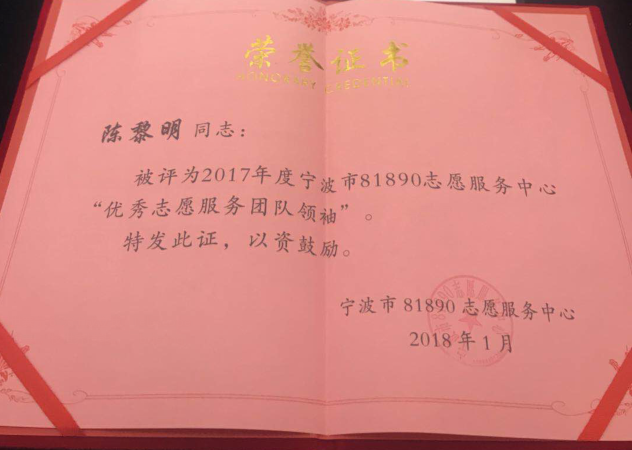 荣誉证书
陈黎明同志：
被评为2017年度宁波市81890志愿服务中心
“优秀志愿服务团队领袖”。
特发此证，以资鼓励。
宁波市 81890 志愿服务中心
2018 年 1 月